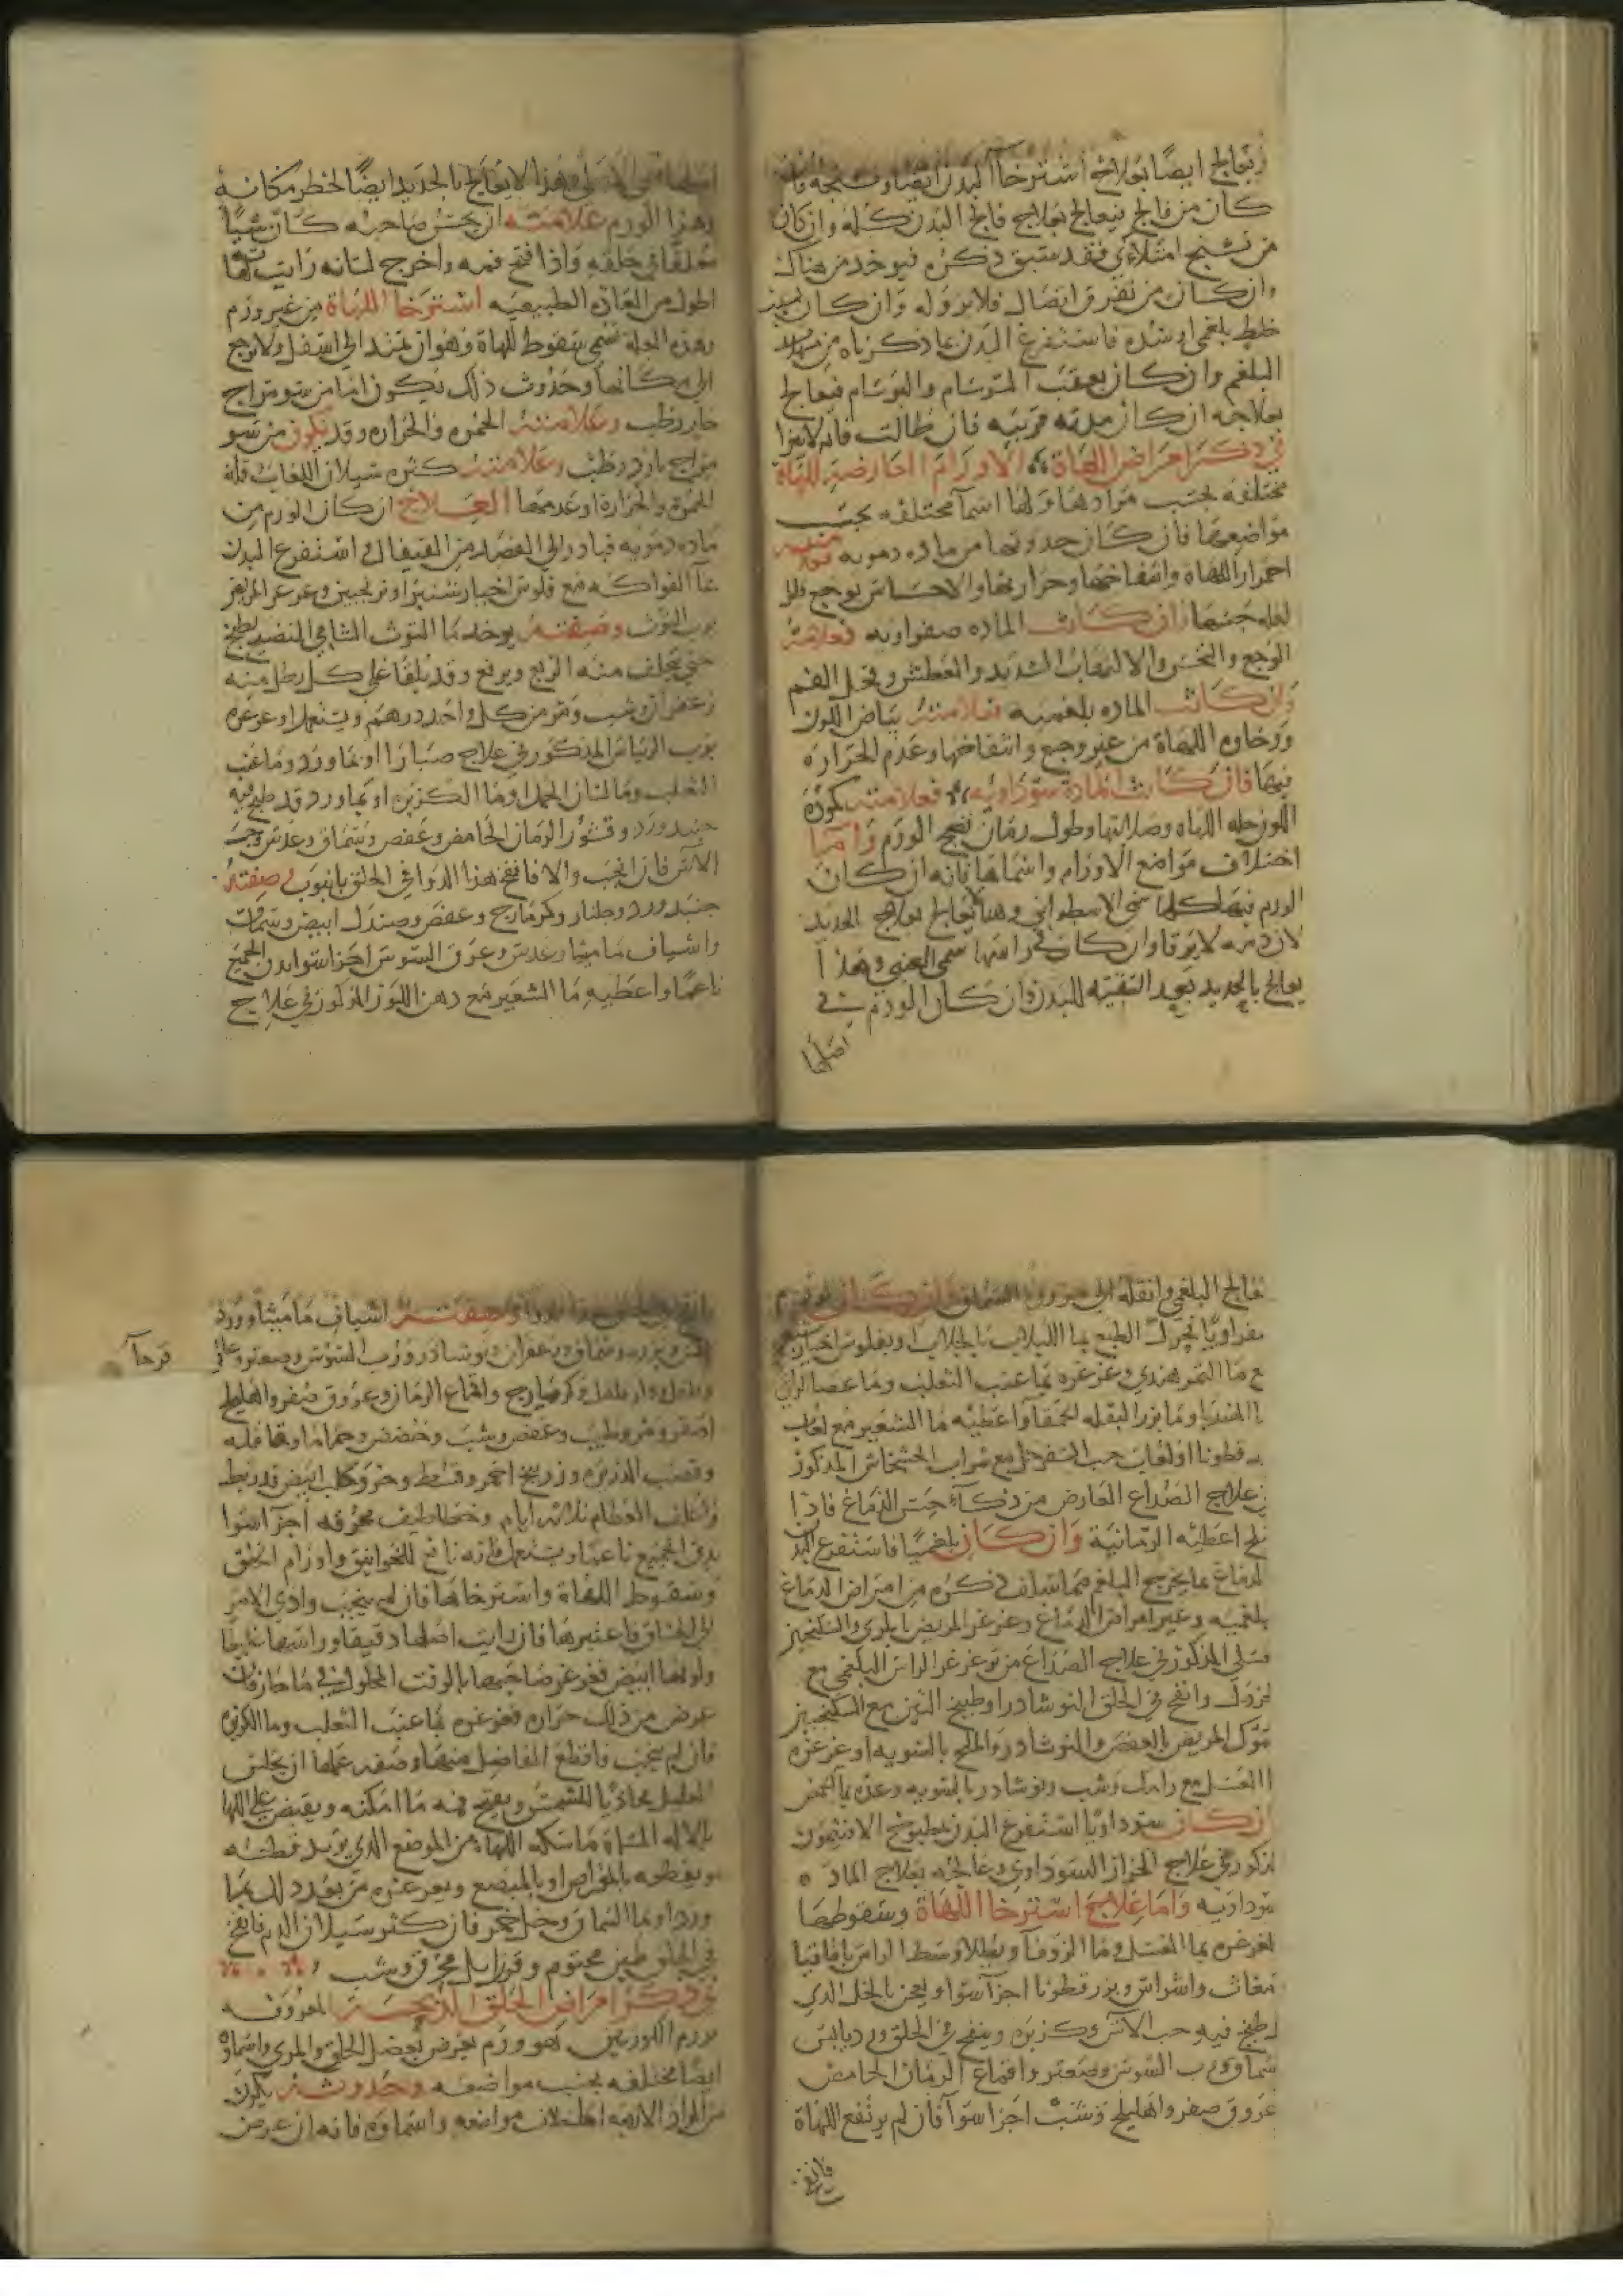 ويعالج ايضًا بعلاج استرخاء البدن ايضا وتشنجه وان
كان من فالج فيعالج بعلاج فالج البدن كله وان كان
من تشنج امتلاءي فقد سبق ذكره فيوخذ من هناك
وان كان من تفرق اتصال فلا برؤ له وان كان
خلط بلغمي استفرغ البدن بما ذكرناه من
البلغم وان كان بعقب السرسام والبرسام فيعالج
بعلاجه ان كان مدته قريبه فان طالت فانه لا يبرا
في ذكر امراض اللهاة الاورام العارضة للهاة
مختلفه بحسب موادها ولها اسما مختلفه بحسب
مواضعها فان كان حدوثها من ماده دمويه فعلامته
احمرار اللهاة وانتفاخها وحرارتها والاحساس بوجع
لغلة جسمها وان كانت الماده صفراويه فعلامته
الوجع والنخس والالتهاب الشديد والعطش الفم
وان كانت الماده بلغميه فعلامته بياض اللون
ورخاوه اللهاة من غير وجع وانتفاخها وعدم الحراره
فيها فان كانت المادة سوداويه فعلامته كمودة
اللون وصلابتها وطول زمان نضج الورم واما
اختلاف مواضع الاورام واسماها فانه ان كان
الورم فيها كلها سمى الاسطواني وهذا يعالج بعلاج الحديد
لان دمه لا يرقا وان كان في راسها سمي العنبي وهذا
يعالج بالحديد بعد التنقيه للبدن وان كان الورم في
اصلها
وهذا لا يعالج بالحديد ايضًا لخطر مكانه
وهذا الورم علامته ان يحس صاحبه كان شيًا
معلقا في حلقه واذا فتح فمه واخرج لسانه رايت لهاته
اطول من العاده الطبيعيه استرخا اللهاة من غير ورم
وهذه العلة تسمى سقوط اللهاة وهو ان تمتد الى اسفل ولا ترجع
الى مكانها وحدوث ذلك يكون اما من سو مزاج
حار رطب وعلامته الحمره والحراره وقد يكون من سو
مزاج بارد رطب وعلامته كثره سيلان اللعاب وقلة
الحمره والحرارة او عدمها العلاج ان كان الورم من
ماده دمويه فبادر الى الفصد من القيفال ثم استفرغ البدن
بما الفواكه مع فلوس خيار شنبر او ترنجبين وغرغر المريض
برب التوث وصفته يوخذ ما التوث الشامي النضيج يطبخ
حتى يتخلف منه الربع ويرفع وقد يلقا على كل رطل منه
زعفران وشب ومر من كل واحد درهم ويستعمل او غرغره
برب الريباس المذكور في علاج صبارا او بما ورد وما عنب
الثعلب وما لسان الحمل وما الكزبره او بما ورد قد طبخ فيه
جنبد ورد وقشور الرمان الحامض وعفص وسماق وعدس وحب
الاس فان انجب والا فانفخ هذا الدوا في الحلق بانبوب وصفته
جنبد ورد وجلنار وكزمازج وعفص وصندل ابيض وسماق
واشياف ماميثا وعدس وعرق السوس اجزا سوا يدق الجميع
ناعمًا واعطيه ما الشعير مع دهن اللوز المذكور في علاج
فالج البلغمي وانقله الى مزورة السماق وان كان الورم
صفراويًا فحرك الطبع بما اللبلاب بالجلاب او بفلوس الخيارشنبر
مع ما التمر هندي وغرغره بما عنب الثعلب وما عصا الراعي
ما الهندبا وما بزر البقله الحمقا واعطيه ما الشعير مع لعاب
بزر قطونا او لعاب حب السفرجل مع شراب الخشخاش المذكور
في علاج الصداع العارض من ذكاء حس الدماغ فاذا
اعطيه الرمانية وان كان بلغميا فاستفرغ البدن
الدماغ بما يخرج البلغم مما سلف ذكره من امراض الدماغ
بلغميه وغير امراض الدماغ وغرغر المريض بالمري والسكنجبين
عسلي المذكور في علاج الصداع من الراس البلغمي مع
الخردل وانفخ في الحلق النوشادر او طبيخ التين مع السكنجبين
المريض بالعفص والنوشادر والملح بالسويه او غرغره
العسل مع رامك وشب ونوشادر بالسويه وغذه بما الحمص
ان كان سوداويًا استفرغ البدن بمطبوخ الافتيمون
المذكور في علاج الحزاز السوداوي وعالجه بعلاج المادة
سوداويه واما علاج استرخا اللهاة وسقوطها
الغرغره بما العسل وما الزوفا ويطلا وسط الراس باقاقيا
مغاث واشراس وبزر قطونا اجزا سوا ويعجن بالخل الذي
طبخ فيه حب الاس وكزبره وينفخ في الحلق
سماق ورب السوس وصعتر واقماع الرمان الحامض
عروق صفر واهليلج وشب اجزا سوا فان لم يرتفع اللهاة
فانفخ
وصفته اشياف ماميثا وورد
وسماق وزعفران ونوشادر ورب السوس وصعتر وعاقر
قرحا
وفلفل ودار فلفل وكزمازج واقماع الرمان وعروق صفر واهليلج
اصفر ومر وطيب وعفص وشب وحضض وحماما وقاقله
وقصب الذريره وزرنيخ احمر وقسط وخرو كلب ابيض قد ربط
واعلف العظام ثلاثه ايام وخطاطيف محرقه اجزا سوا
يدق الجميع ناعمًا ويستعمل فانه نافع للخوانيق واورام الحلق
وسقوط اللهاة واسترخاها فان لم ينجب وادى الامر
الى الخناق فاعتبرها فان رايت اصلها دقيقا وراسها غليظا
ولونها ابيض جميعا بالوقت المحلول في ما حار فان
عرض من ذلك حراره فغرغره بما عنب الثعلب وما الكزبره
فان لم ينجب فاقطع الفاضل منها وصفه عملها ان يجلس
العليل محاذيًا للشمس ويفتح فمه ما امكنه ويقبض على اللها
بالاله المسماة ماسكه اللهاة من الموضع الذي تريد قطعه
ويقطعه بالمقراض او بالمبضع ويغرغره من بعد ذلك بما
ورد او بما السماق وخل خمر فان كثر سيلان الدم فانفخ
في الحلق طين مختوم وقرن ايل محرق وشب
في ذكر امراض الحلق الذبحة المعروفه
بورم اللوزتين هو ورم يعرض لعضل الحلق والمري واسماوه
ايضًا مختلفه بحسب مواضعه وحدوثه يكون
من المواد الاربعه اختلاف مواضعه واسماوه فانه ان عرض